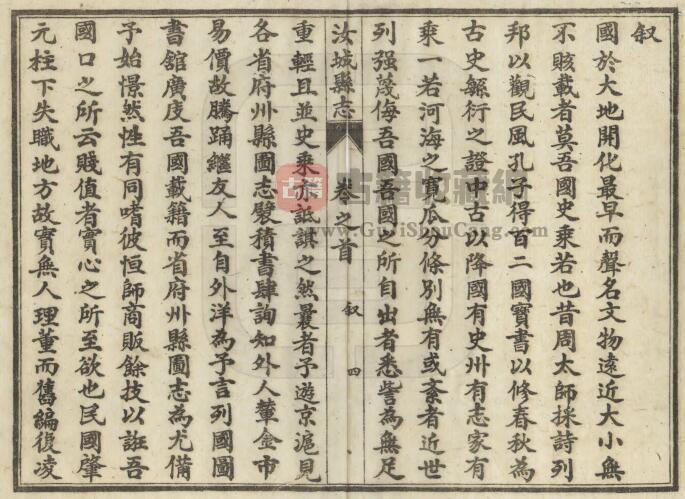 叙
國於大地開化最早而聲名文物遠近大小無
不賅載者莫吾國史乘若也昔周太師採詩列
邦以觀民風孔子得百二國寶書以修春秋為
古史緐衍之證中古以降國有史州有志家有
乘一若河海之寬瓜分條別無有或紊者近世
列强蔑侮吾國吾國之所自出者悉訾為無足
汝城縣志
卷之首
叙
四
重輕且並史乘亦詆諆之然曩者予遊京滬見
各省府州縣圖志襞積書肆詢知外人輦金市
易價故騰踊繼友人至自外洋為予言列國圖
書舘廣庋吾國載籍而省府州縣圖志為尤備
予始憬然性有同嗜彼恒師商販餘技以誑吾
國口之所云賤值者實心之所至欲也民國肇
元柱下失職地方故實無人理董而舊編復凌
古籍收藏網
www.GuJiShouCang.com
古籍